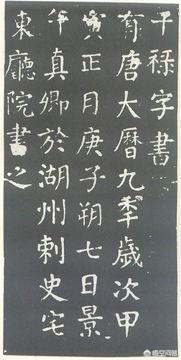 干祿字書
有唐大曆九秊歲次甲
寅正月庚子朔七日景
午真卿於湖州刺史宅
東廳院書之
悟空问答